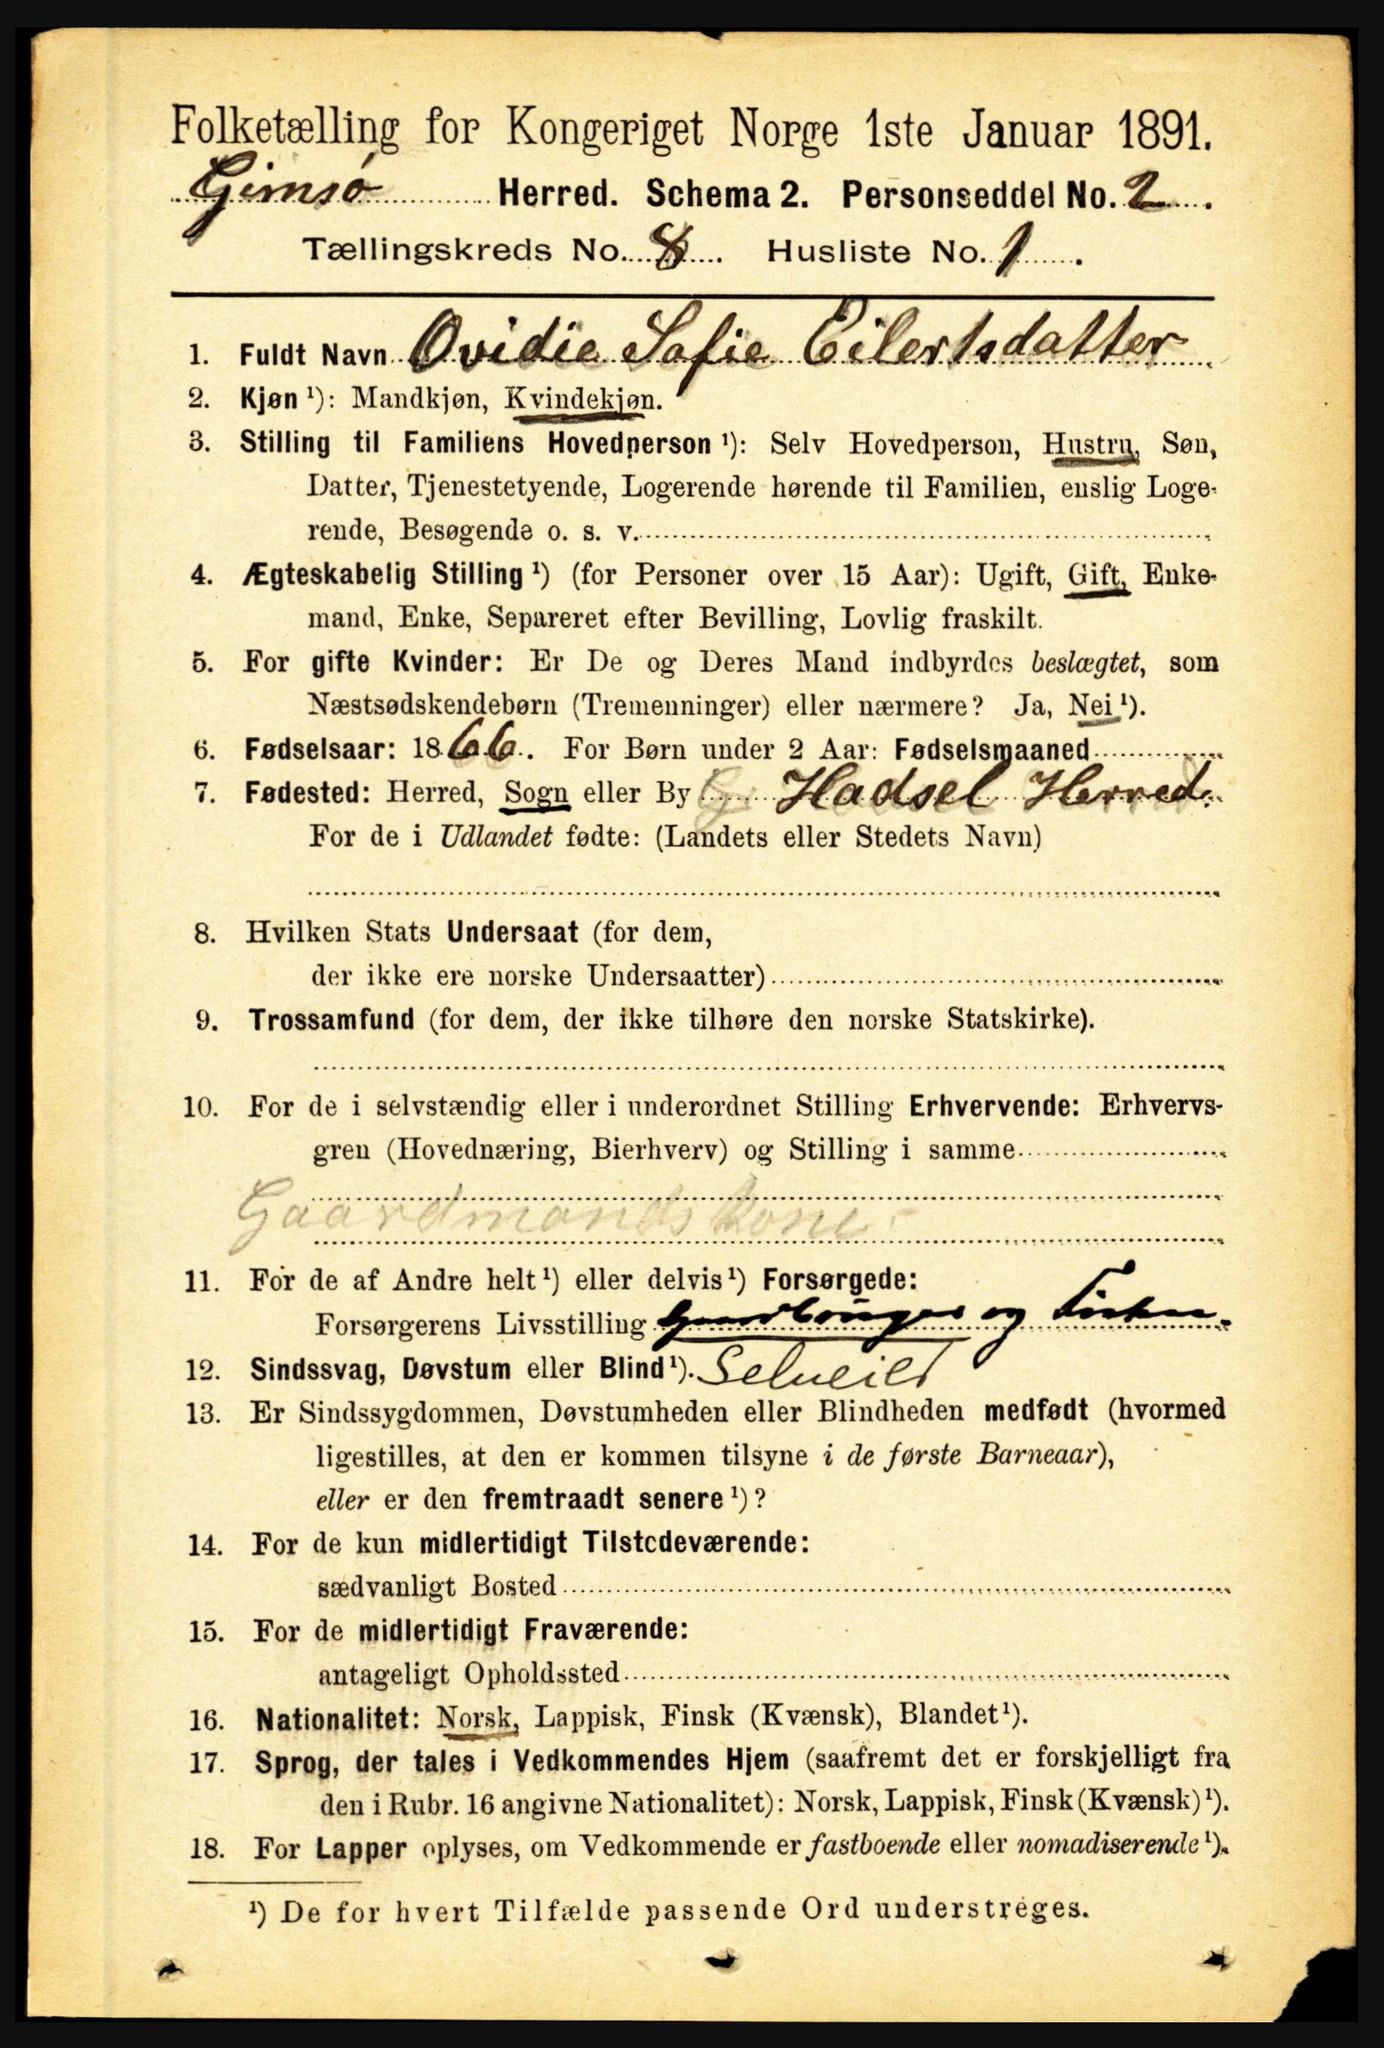 Folketælling for Kongeriget Norge 1ste Januar 1891.
Gimsø Herred. Schema 2. Personseddel No. 2.
Tællingskreds No. 8. Husliste No. 1.
1. Fuldt Navn Ovidie Sofie Eilertsdatter
2. Kjøn ¹): Mandkjøn, Kvindekjøn.
3. Stilling til Familiens Hovedperson ¹): Selv Hovedperson, Hustru, Søn,
Datter, Tjenestetyende, Logerende hørende til Familien, enslig Loge-
rende, Besøgende o. s. v.
4. Ægteskabelig Stilling ¹) (for Personer over 15 Aar): Ugift, Gift, Enke-
mand, Enke, Separeret efter Bevilling, Lovlig fraskilt.
5. For gifte Kvinder: Er De og Deres Mand indbyrdes beslægtet, som
Næstsødskendebørn (Tremenninger) eller nærmere? Ja, Nei ¹).
6. Fødselsaar: 1866. For Børn under 2 Aar: Fødselsmaaned
7. Fødested: Herred, Sogn eller By Hadsel Herred.
For de i Udlandet fødte: (Landets eller Stedets Navn)
8. Hvilken Stats Undersaat (for dem,
der ikke ere norske Undersaatter)
9. Trossamfund (for dem, der ikke tilhøre den norske Statskirke).
10. For de i selvstændig eller i underordnet Stilling Erhvervende: Erhvervs-
gren (Hovednæring, Bierhverv) og Stilling i samme
Gaardmands Kone
11. For de af Andre helt ¹) eller delvis ¹) Forsørgede:
Forsørgerens Livsstilling Gaardbruger og Fisker.
12. Sindssvag, Døvstum eller Blind ¹). Selveier
13. Er Sindssygdommen, Døvstumheden eller Blindheden medfødt (hvormed
ligestilles, at den er kommen tilsyne i de første Barneaar),
eller er den fremtraadt senere ¹)?
14. For de kun midlertidigt Tilstedeværende:
sædvanligt Bosted
15. For de midlertidigt Fraværende:
antageligt Opholdssted
16. Nationalitet: Norsk, Lappisk, Finsk (Kvænsk), Blandet ¹).
17. Sprog, der tales i Vedkommendes Hjem (saafremt det er forskjelligt fra
den i Rubr. 16 angivne Nationalitet): Norsk, Lappisk, Finsk (Kvænsk) ¹).
18. For Lapper oplyses, om Vedkommende er fastboende eller nomadiserende ¹).
¹) De for hvert Tilfælde passende Ord understreges.